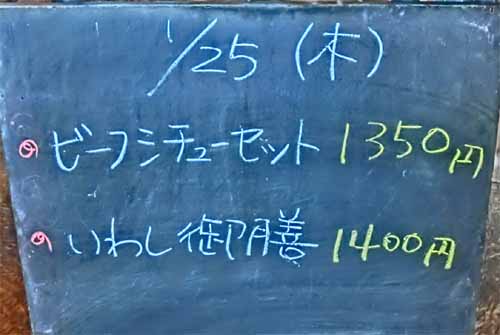 1/25(木)
ビーフシチューセット 1350円
いわし御膳 1400円